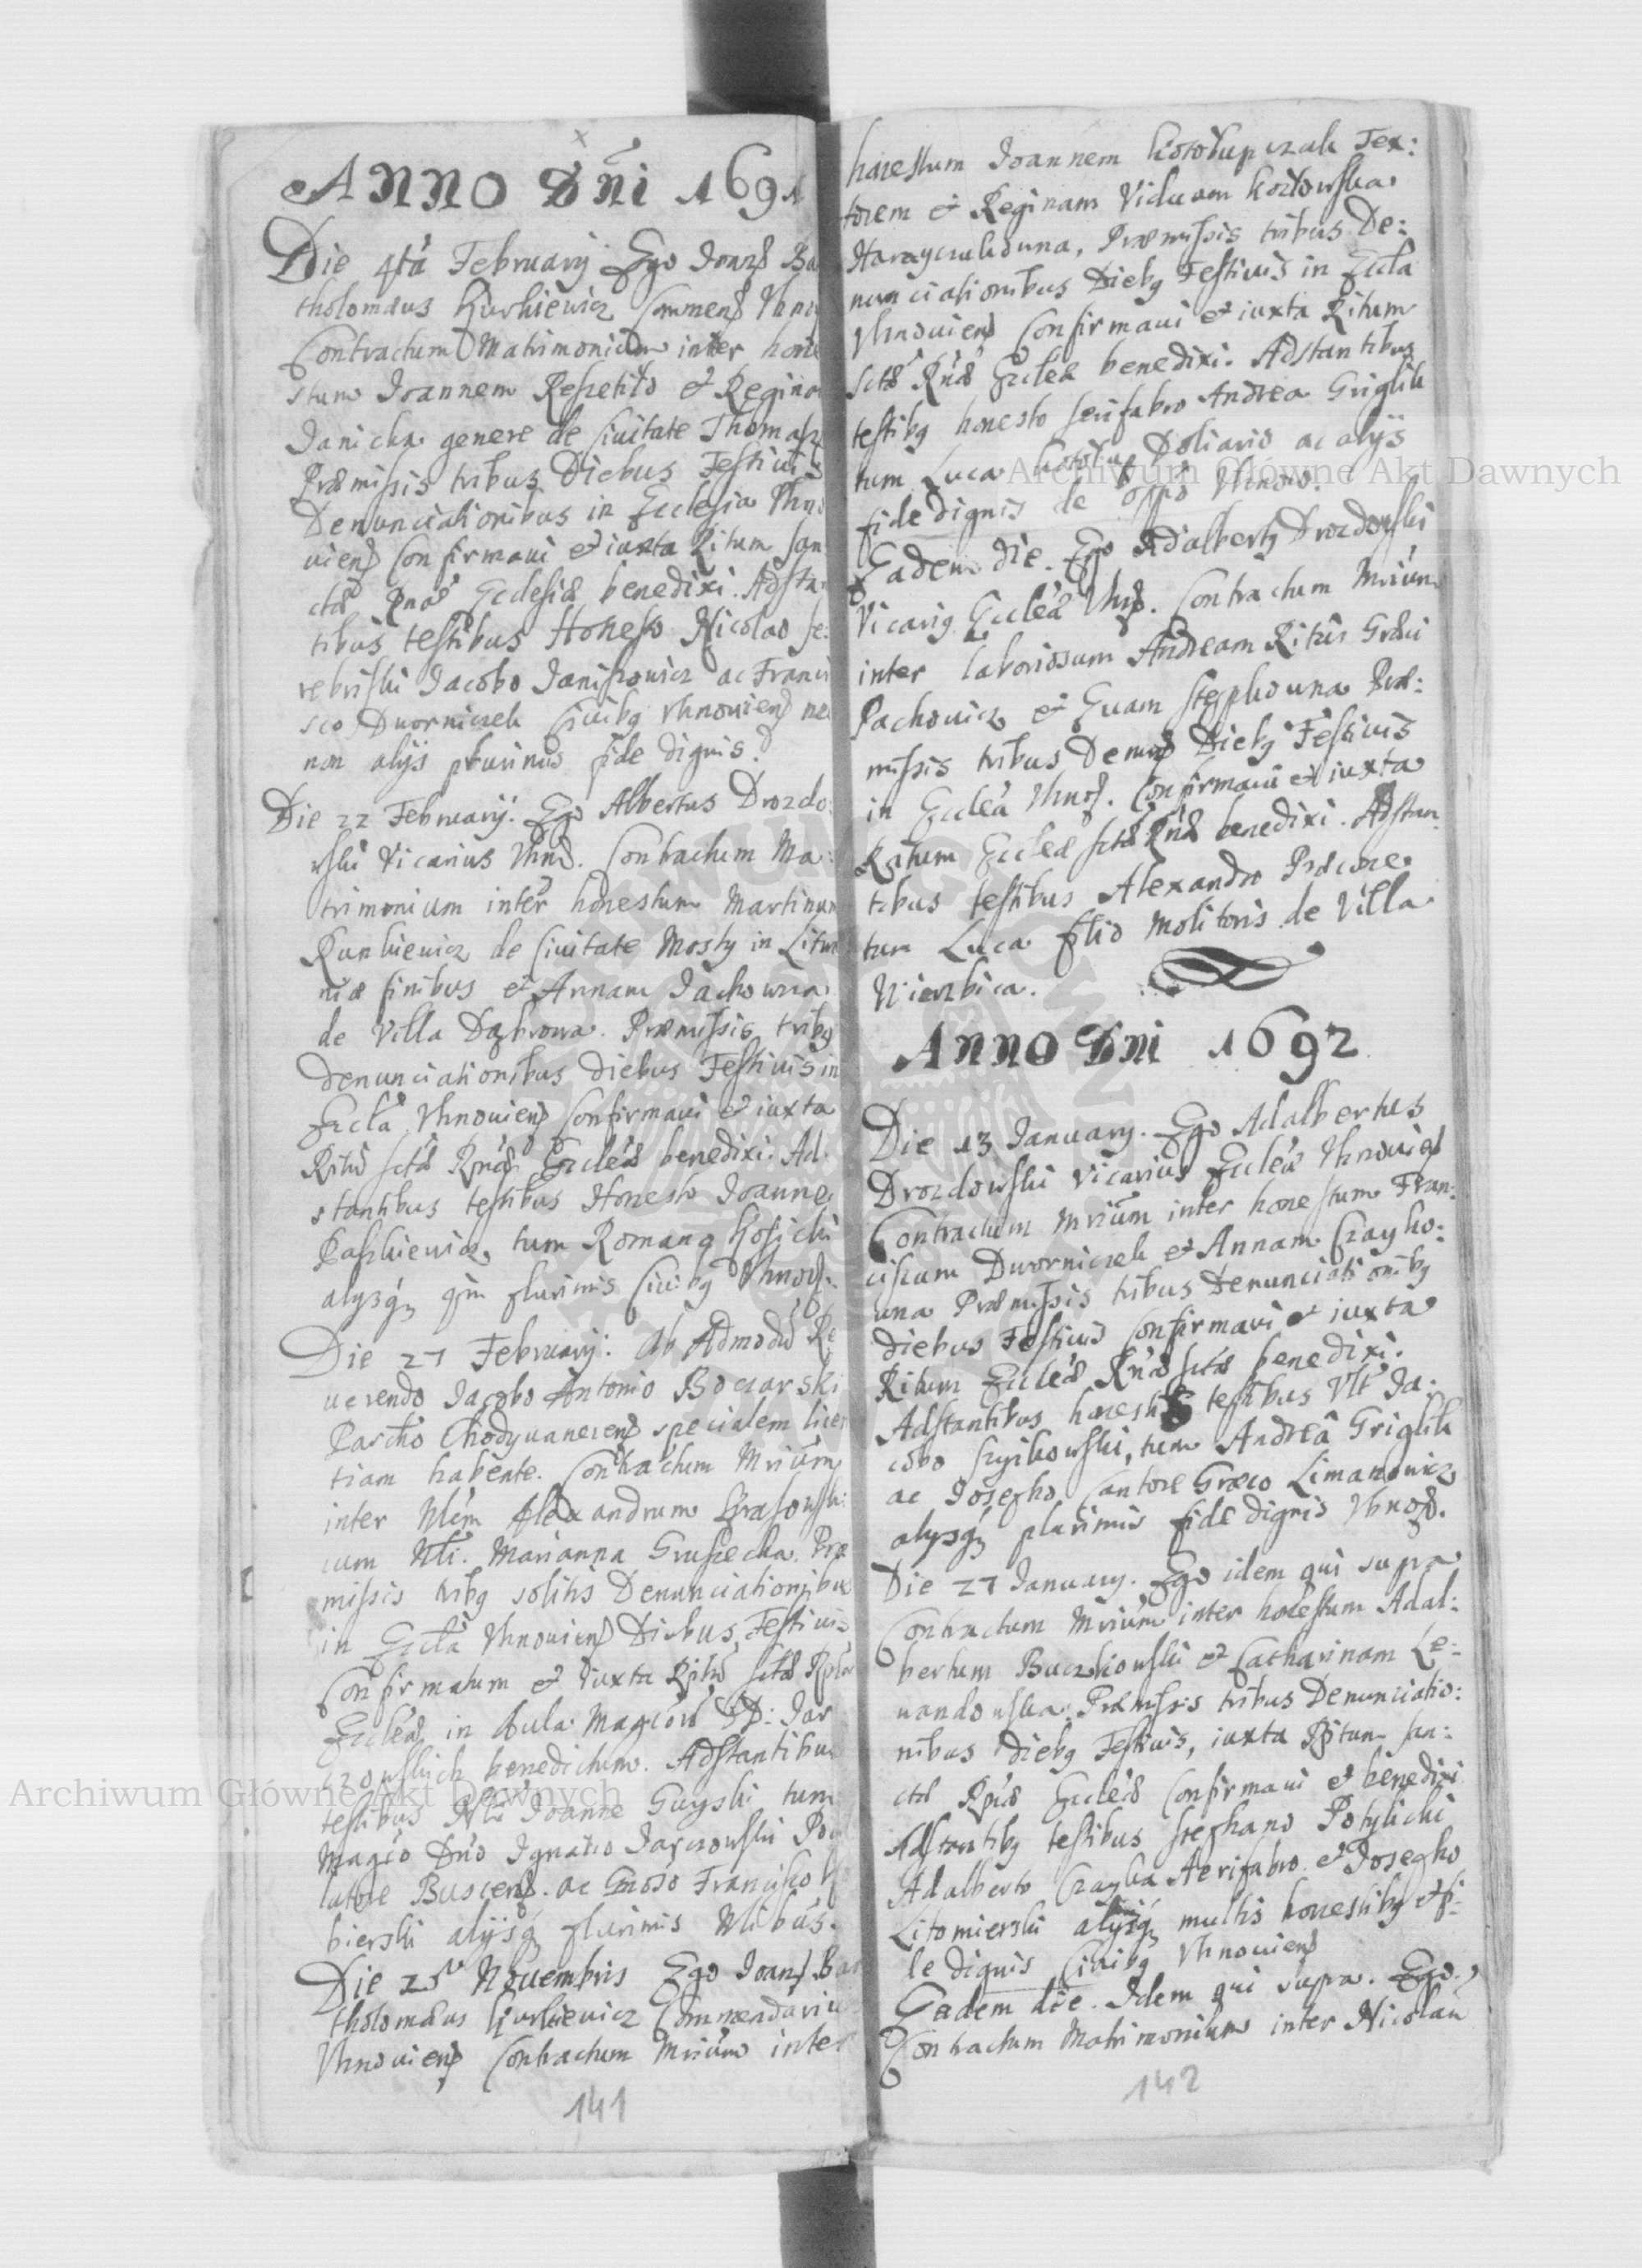 Anno Dni 1691
Die 4tâ February Ego Joan͠s Ba
tholomæus Kurkiewicz Commen͠s Vhno
Contractum Matrimonium inter hone
stum Joannem Repetiło et Regina
Janicka genere de Civitate Thomasz
Præmissis tribus Diebus Festivis
Denunciationibus in Ecclesia Vhno
vien͠s confirmavi et iuxta Ritum San
ctæ Rnæ Ecclesiæ benedixi. Adstan
tibus testibus Honesto Nicolao Se:
rebriski Jacobo Janiszowicz ac Franci
sco Dworniczek Civibg Vhnovien͠s nec
non alijs plurimis fide dignis.
Die 22 February. Ego Albertus Drozdo:
wski Vicarius Vhn͠s. Contractum Ma:
trimonium inter honestum Martinum
Runkiewicz de Civitate Mosty in Litua
niæ finibus et Annam Jackowna
de Villa Dąbrowa. Præmissis tribg
denunciationibus diebus Festivis in
Eccła Vhnovien͠s Confirmavi et iuxta
Ritũ sctæ Rnæ Eccleæ benedixi. Ad:
stantibus testibus Honesto Joanne
Paszkiewicz, tum Romano Kosicki
alysq qm plurimis Civibg Vhnov͠s.
Die 27 February. Ab Admodũ Re
verendo Jacobo Antonio Boczarski
Parcho Chodyvanecen͠s specialem licen
tiam habente. Contractum Mrium
inter Nłem Alexandrum Brasowski
cum Nłi. Marianna Gruszecka. Præ
missis tribg solitis Denunciationibus
in Eccła Vhnovien͠s Diebus Festivis
Confirmatum et iuxta Ritũ sctæ Rnæ
Eccleæ in Aula Magcorũ DD: Jar
czowskich benedictum. Adstantibus
testibus Nłi Joanne Guyski tum
Magco Dno Ignatio Jarczowski Po
latore Buscen͠s. ac Gnoso Francisco
bierski alijsq plurimis Nłibus.
Die 25 Novembris Ego Joan͠s Bar
tholomæus Kurkiewicz Commendarius
Vhnovien͠s Contractum Mrium inter
141
honestum Joannem Kołołupczak Tex:
torem et Reginam Viduam Kozłowska
Harayczukowna, Præmissis tribus De:
nunciationibus Diebg Festivis in Eccła
Vhnovien͠s Confirmavi et iuxta Ritum
sctæ Rnæ Eccleæ benedixi. Adstantibus
testibg honesto serifabro Andrea Griglik
tum Luca Doliario ac alijs
fide dignis de Oppo Vhnow.
Eadem die. Ego Adalbertg Drozdowski
Vicarig Eccleæ Vhn͠s. Contractum Mrium
inter laboriosum Andream Ritus Græci
Pachowicz et Evam Stepkowna Præ:
missis tribus Denun͠s Diebg Festivis
in Ecclea Vhno͠s. Confirmavi et iuxta
Ritum Eccleæ sctæ Rnæ benedixi. Adstan:
tibus testibus Alexandro Præcone
tum Luca filio Molitoris de Villa
Wierzbica.
Anno Dni 1692
Die 13 January. Ego Adalbertus
Drozdowski Vicarius Eccleæ Vhnovien͠s
Contractum Mrium inter honestum Fran:
ciscum Dworniczek et Annam Czayko:
wna Præmissis tribus Denunciationibg
diebus Festivis Confirmavi et iuxta
Ritum Eccleæ Rnæ sctæ benedixi.
Adstantibus honestis testibus Vłt Ja:
cobo Szpikowski, tum Andreâ Griglik
ac Josepho Cantore Græco Limanowicz
alysq plurimis fide dignis Vhno͠s.
Die 27 January. Ego idem qui supra
Contractum Mrium inter honestum Adal:
bertum Buczkowski et Catharinam Le:
wandowska. Præmissis tribus Denunciatio:
nibus diebg Festivis, iuxta Ritum San:
ctæ Rnæ Eccleæ Confirmavi et benedixi
Adstantibg testibus Stephano Potylicki
Adalberto Czayka Aerifabro et Josepho
Litomierski alijsq multis honestibg et fi:
de dignis Civibg Vhnovien͠s
Eadem die. Idem qui supra. Ego
Contractum Matrimonium inter Nicolaũ
142
Archiwum Główne Akt Dawnych
Archiwum Główne Akt Dawnych